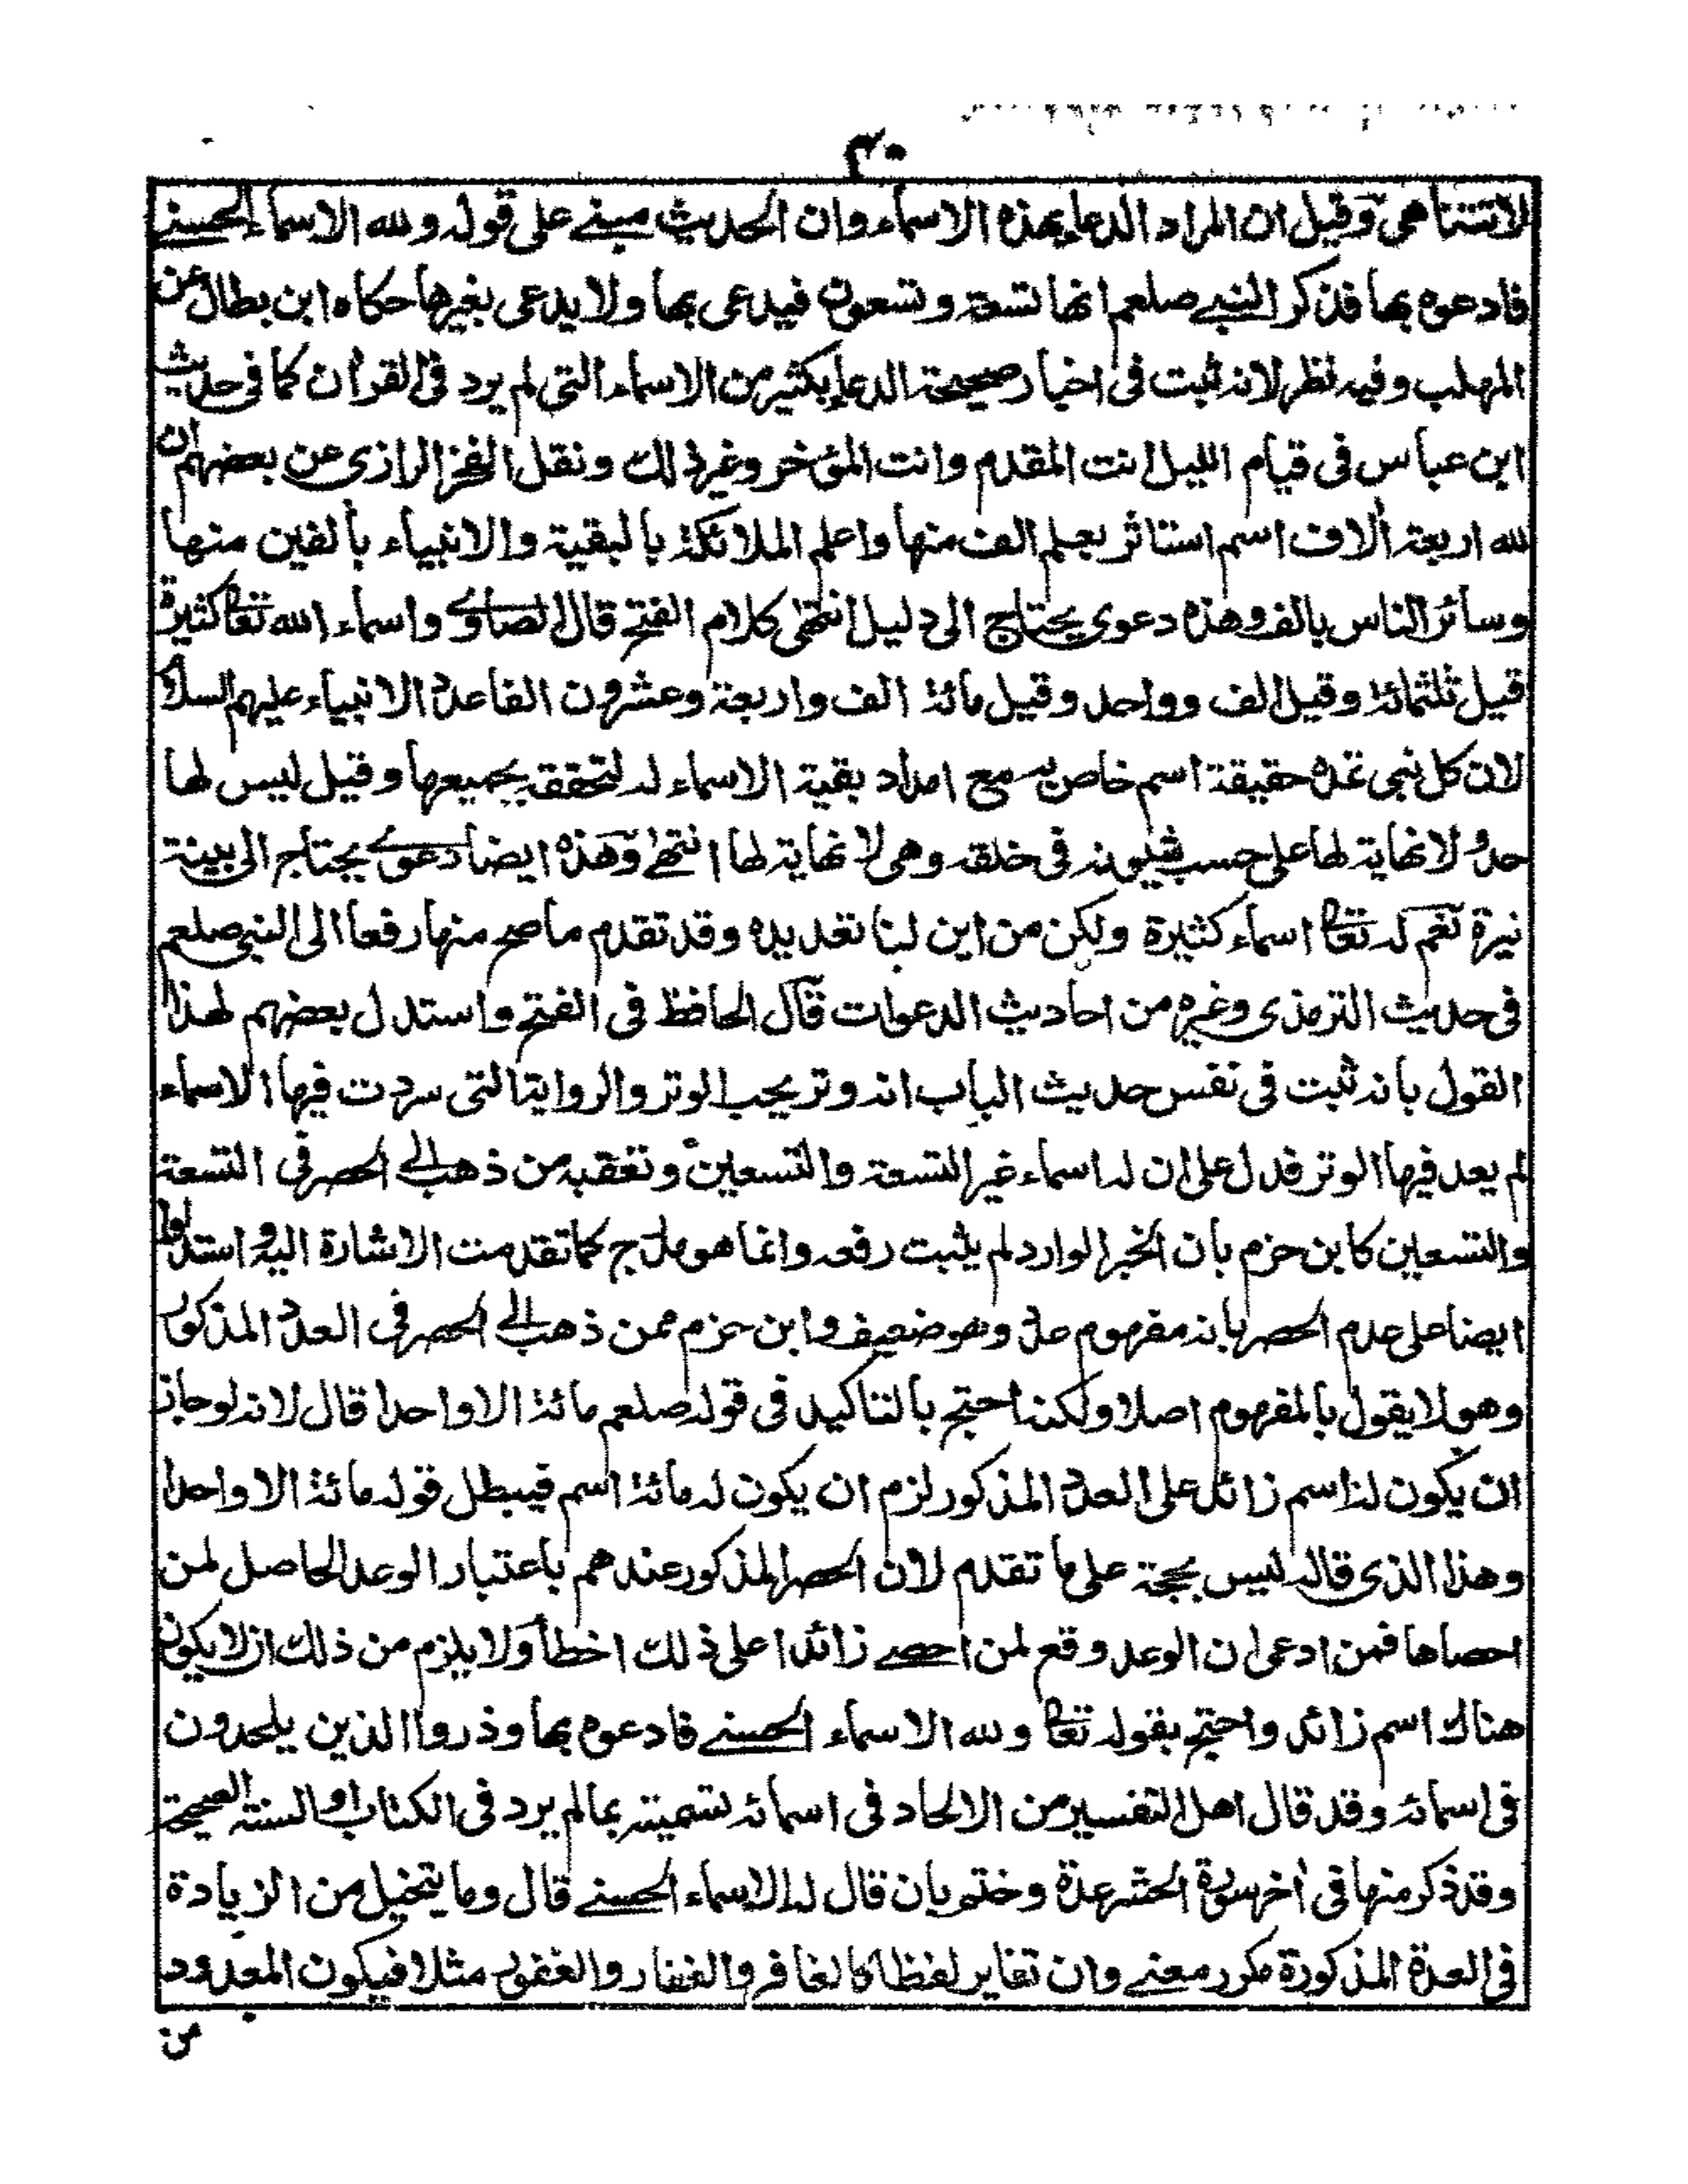 ٣٠
لا تتناهى وقيل ان المراد الدعاء بهذه الاسماء وان الحديث مبني على قوله ولله الاسماء الحسنى
فادعوه بها فذكر النبي صلعم انها تسعة وتسعون فيدعى بها ولا يدعى بغيرها حكاه ابن بطال عن
المهلب وفيه نظر لانه ثبت في اخبار صحيحة الدعاء بكثير من الاسماء التي لم يرد في القرآن كما في حديث
ابن عباس في قيام الليل انت المقدم وانت المؤخر وغير ذلك ونقل الفخر الرازي عن بعضهم ان
لله اربعة ألاف اسم استاثر بعلم الف منها واعلم الملائكة بالبقية والانبياء بألفين منها
وسائر الناس بالف وهذه دعوى يحتاج الى دليل انتهى كلام الفتح قال الصاوي واسماء الله تعالى كثيرة
قيل ثلثمائة وقيل الف وواحد وقيل مائة الف واربعة وعشرون الفا عدد الانبياء عليهم السلام
لان كل نبي تمده حقيقة اسم خاص به مع امداد بقية الاسماء له لتحققه بجميعها وقيل ليس لها
حد ولا نهاية لها على حسب شيونه في خلقه وهي لا نهاية لها انتهى وهذه ايضا دعوى يحتاج الى بينة
نيرة نعم له تعالى اسماء كثيرة ولكن من اين لنا تحديده وقد تقدم ما صح منها رفعا الى النبي صلعم
في حديث الترمذي وغيره من احاديث الدعوات قال الحافظ في الفتح واستدل بعضهم لهذا
القول بأنه ثبت في نفس حديث الباب انه وتر يحب الوتر والرواية التي سردت فيها الاسماء
لم يعد فيها الوتر فدل على ان له اسماء غير التسعة والتسعين وتعقبه من ذهب الى الحصر في التسعة
والتسعين كابن حزم بان الخبر الوارد لم يثبت رفعه وانما هو مدرج كما تقدمت الاشارة اليه واستدلوا
ايضا على عدم الحصر بانه مفهوم عدد وهو ضعيف وابن حزم ممن ذهب الى الحصر في العدد المذكور
وهو لا يقول بالمفهوم اصلا ولكنه احتج بالتاكيد في قوله صلعم مائة الا واحدا قال لانه لو جاز
ان يكون له اسم زائد على العدد المذكور لزم ان يكون له مائة اسم فيبطل قوله مائة الا واحدا
وهذا الذي قاله ليس بحجة على ما تقدم لان الحصر المذكور عندهم باعتبار الوعد الحاصل لمن
احصاها فمن ادعى ان الوعد وقع لمن احصى زائدا على ذلك اخطأ ولا يلزم من ذلك ان لا يكون
هناك اسم زائد واحتج بقوله تعالى ولله الاسماء الحسنى فادعوه بها وذروا الذين يلحدون
في اسمائه وقد قال اهل التفسير من الالحاد في اسمائه تسميته بما لم يرد في الكتاب او السنة الصحيحة
وقد ذكر منها في أخر سورة الحشر عدة وختم بان قال له الاسماء الحسنى قال وما يتخيل من الزيادة
في العدة المذكورة مكرر معنى وان تغاير لفظا كالغافر والغفار والغفور مثلا فيكون المعدود
من